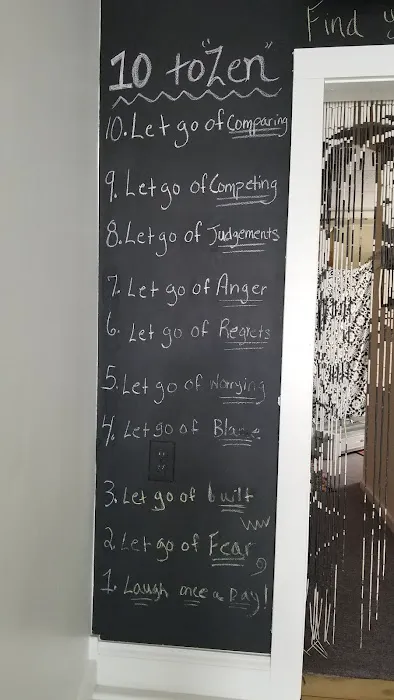 Find
10 to "Zen"
10. Let go of Comparing
9. Let go of Competing
8. Let go of Judgements
7. Let go of Anger
6. Let go of Regrets
5. Let go of Worrying
4. Let go of Blame
3. Let go of Guilt
2. Let go of Fear
1. Laugh once a Day!